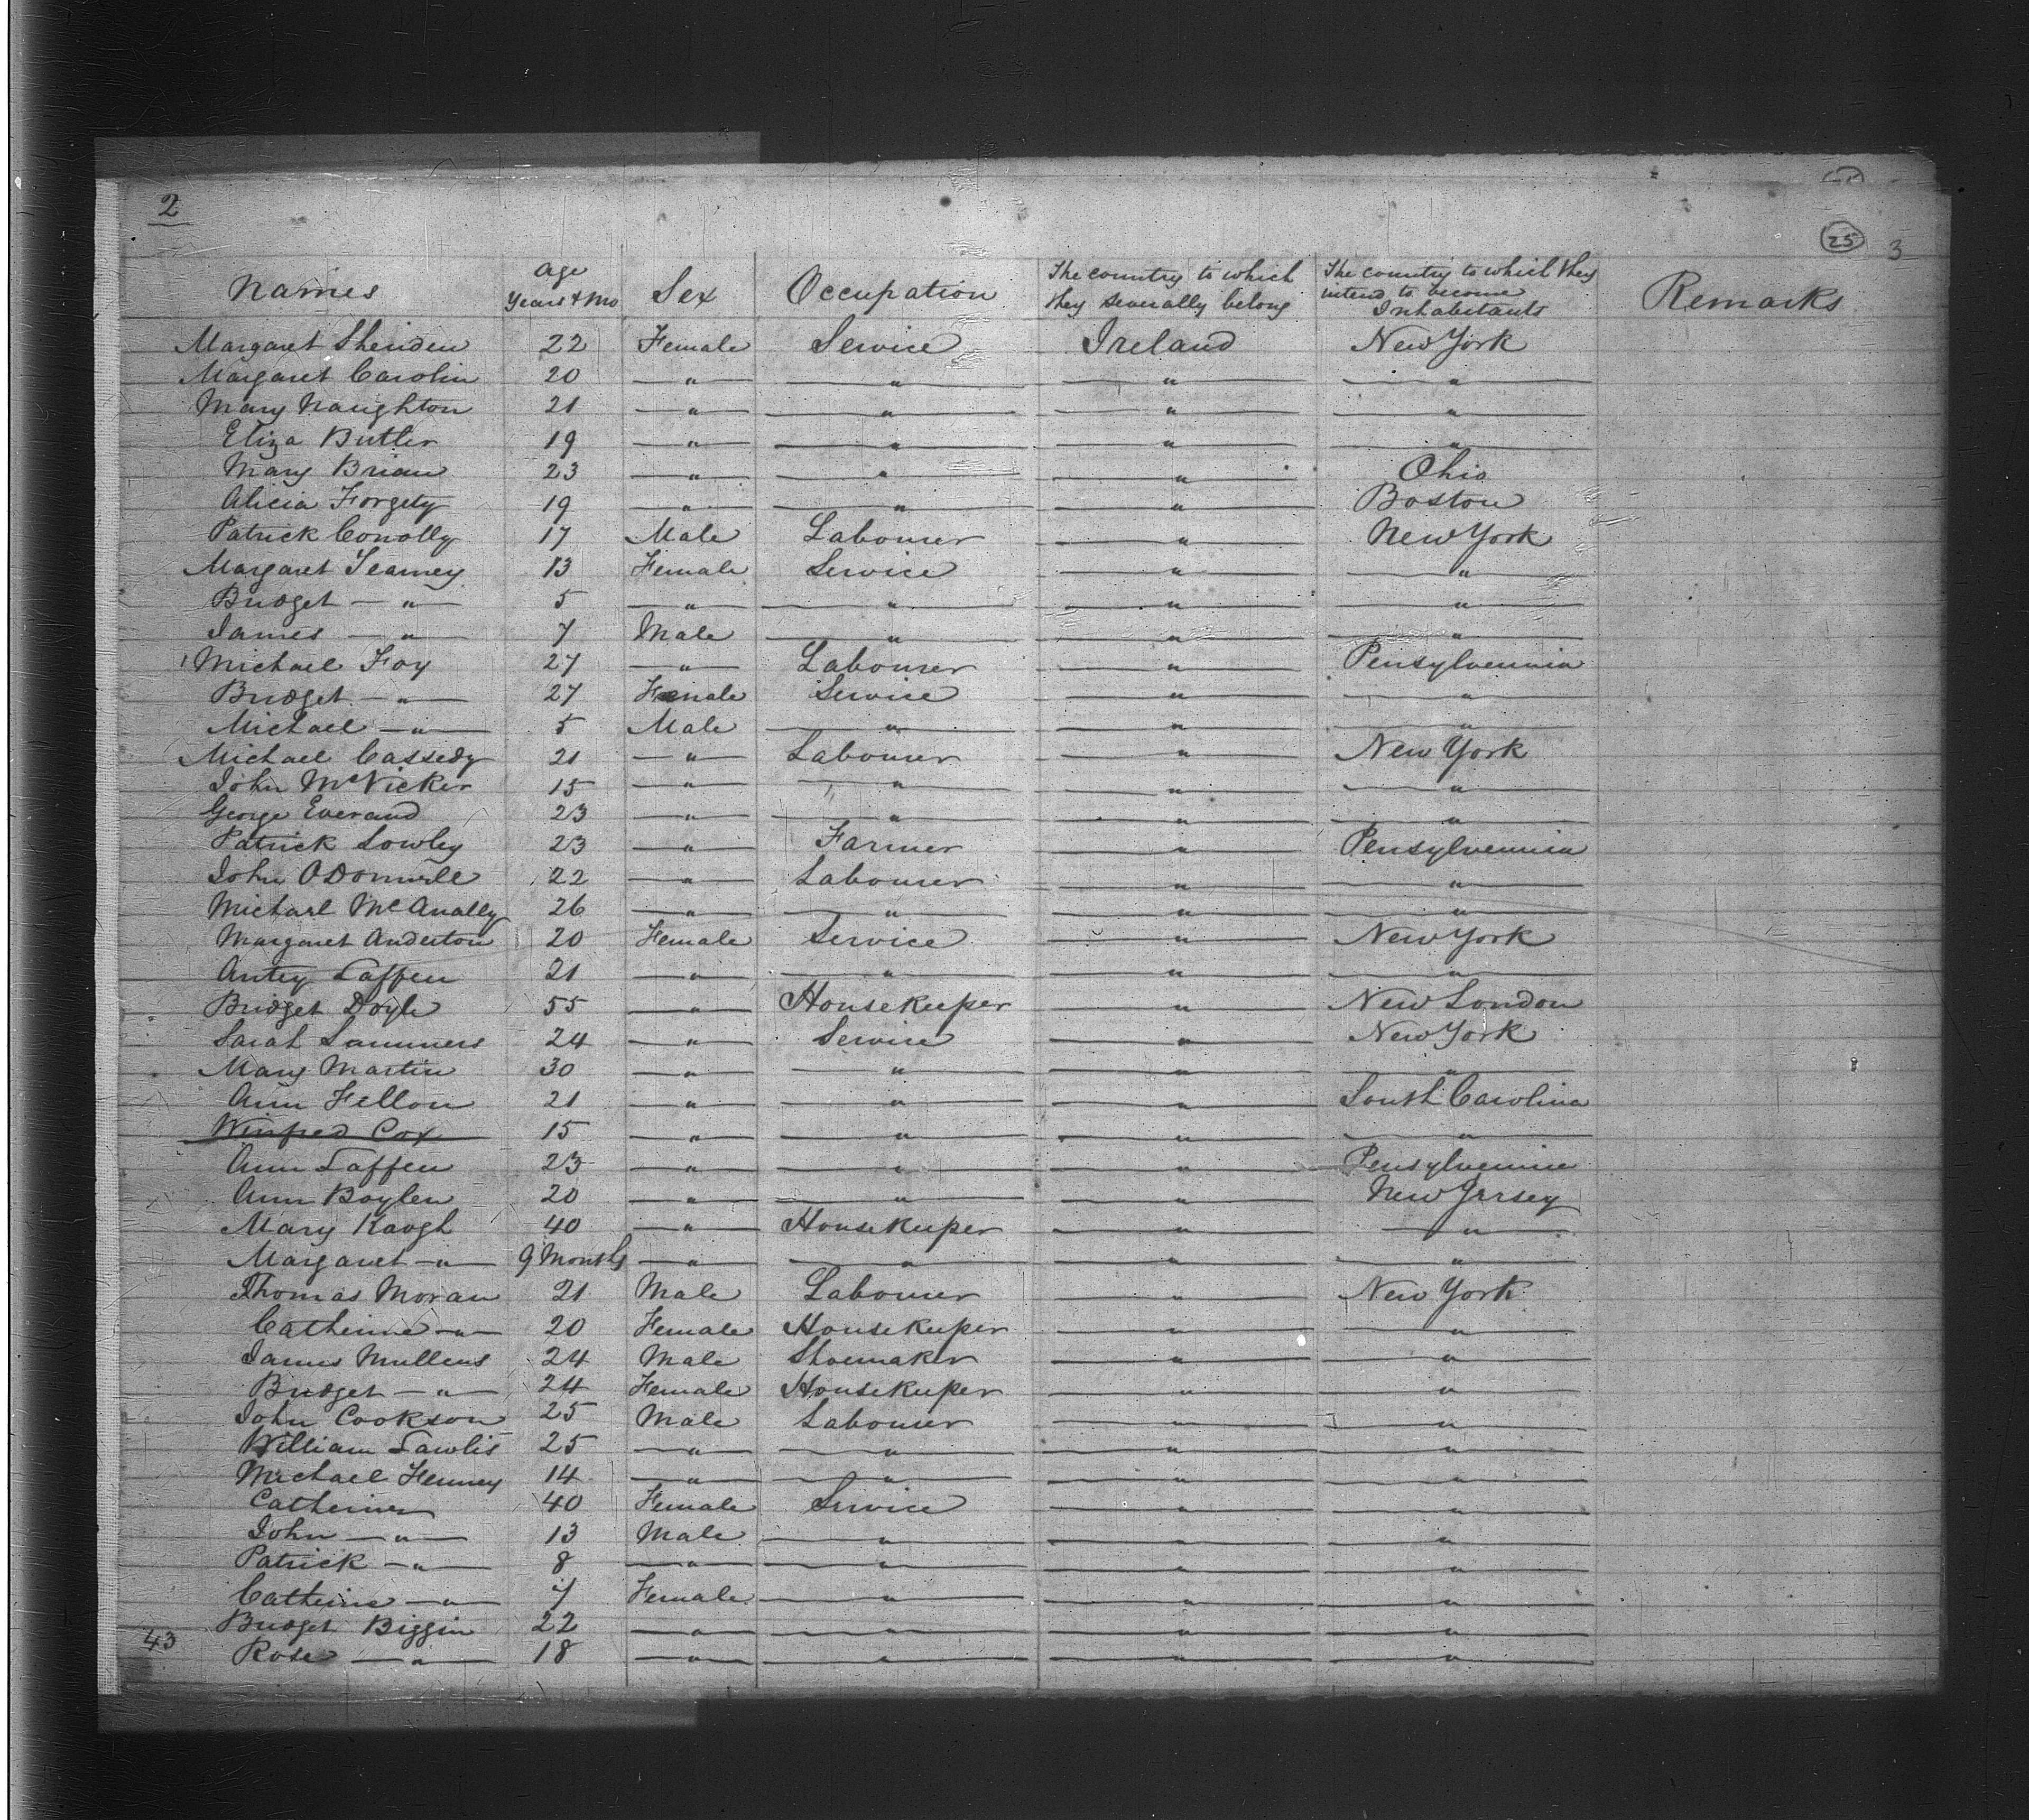 2
25 3
Names Age Years & Mo Sex Occupation The country to which they severally belong The country to which they intend to become Inhabitants Remarks
Margaret Sheriden 22 Female Service Ireland New York
Margaret Carolin 20 — " — — " — — " — — " —
Mary Naughton 21 — " — — " — — " — — " —
Eliza Butler 19 — " — — " — — " — — " —
Mary Brian 23 — " — — " — — " — Ohio
Alicia Forgety 19 — " — — " — — " — Boston
Patrick Conolly 17 Male Labourer — " — New York
Margaret Tearney 13 Female Service — " — — " —
Bridget — " — 5 — " — — " — — " — — " —
James — " — 7 Male — " — — " — — " —
Michael Foy 27 — " — Labourer — " — Pensylvennia
Bridget — " — 27 Female Service — " — — " —
Michael — " — 5 Male — " — — " — — " —
Michael Cassedy 21 — " — Labourer — " — New York
John McVicker 15 — " — — " — — " — — " —
George Everand 23 — " — — " — — " — — " —
Patrick Lowley 23 — " — Farmer — " — Pensylvennia
John ODonnell 22 — " — Labourer — " — — " —
Michael McAnally 26 — " — — " — — " — — " —
Margaret Anderton 20 Female Service — " — New York
Antey Laffen 21 — " — — " — — " — — " —
Bridget Doyle 55 — " — Housekeeper — " — New London
Sarah Summers 24 — " — Service — " — New York
Mary Martin 30 — " — — " — — " — — " —
Ann Fellon 21 — " — — " — — " — South Carolina
Winfred Cox 15 — " — — " — — " — — " —
Ann Laffen 23 — " — — " — — " — Pensylvennia
Ann Boylen 20 — " — — " — — " — New Jersey
Mary Kaogh 40 — " — Housekeeper — " — — " —
Margaret — " — 9 Months — " — — " — — " — — " —
Thomas Moran 21 Male Labourer — " — New York
Catherine — " — 20 Female Housekeeper — " — — " —
James Mullens 24 Male Shoemaker — " — — " —
Bridget — " — 24 Female Housekeeper — " — — " —
John Cookson 25 Male Labourer — " — — " —
William Lawlis 25 — " — — " — — " — — " —
Michael Fenney 14 — " — — " — — " — — " —
Catherine 40 Female Service — " — — " —
John — " — 13 Male — " — — " — — " —
Patrick — " — 8 — " — — " — — " — — " —
Catherine — " — 7 Female — " — — " — — " —
Bridget Biggin 22 — " — — " — — " — — " —
43 Rose — " — 18 — " — — " — — " — — " —